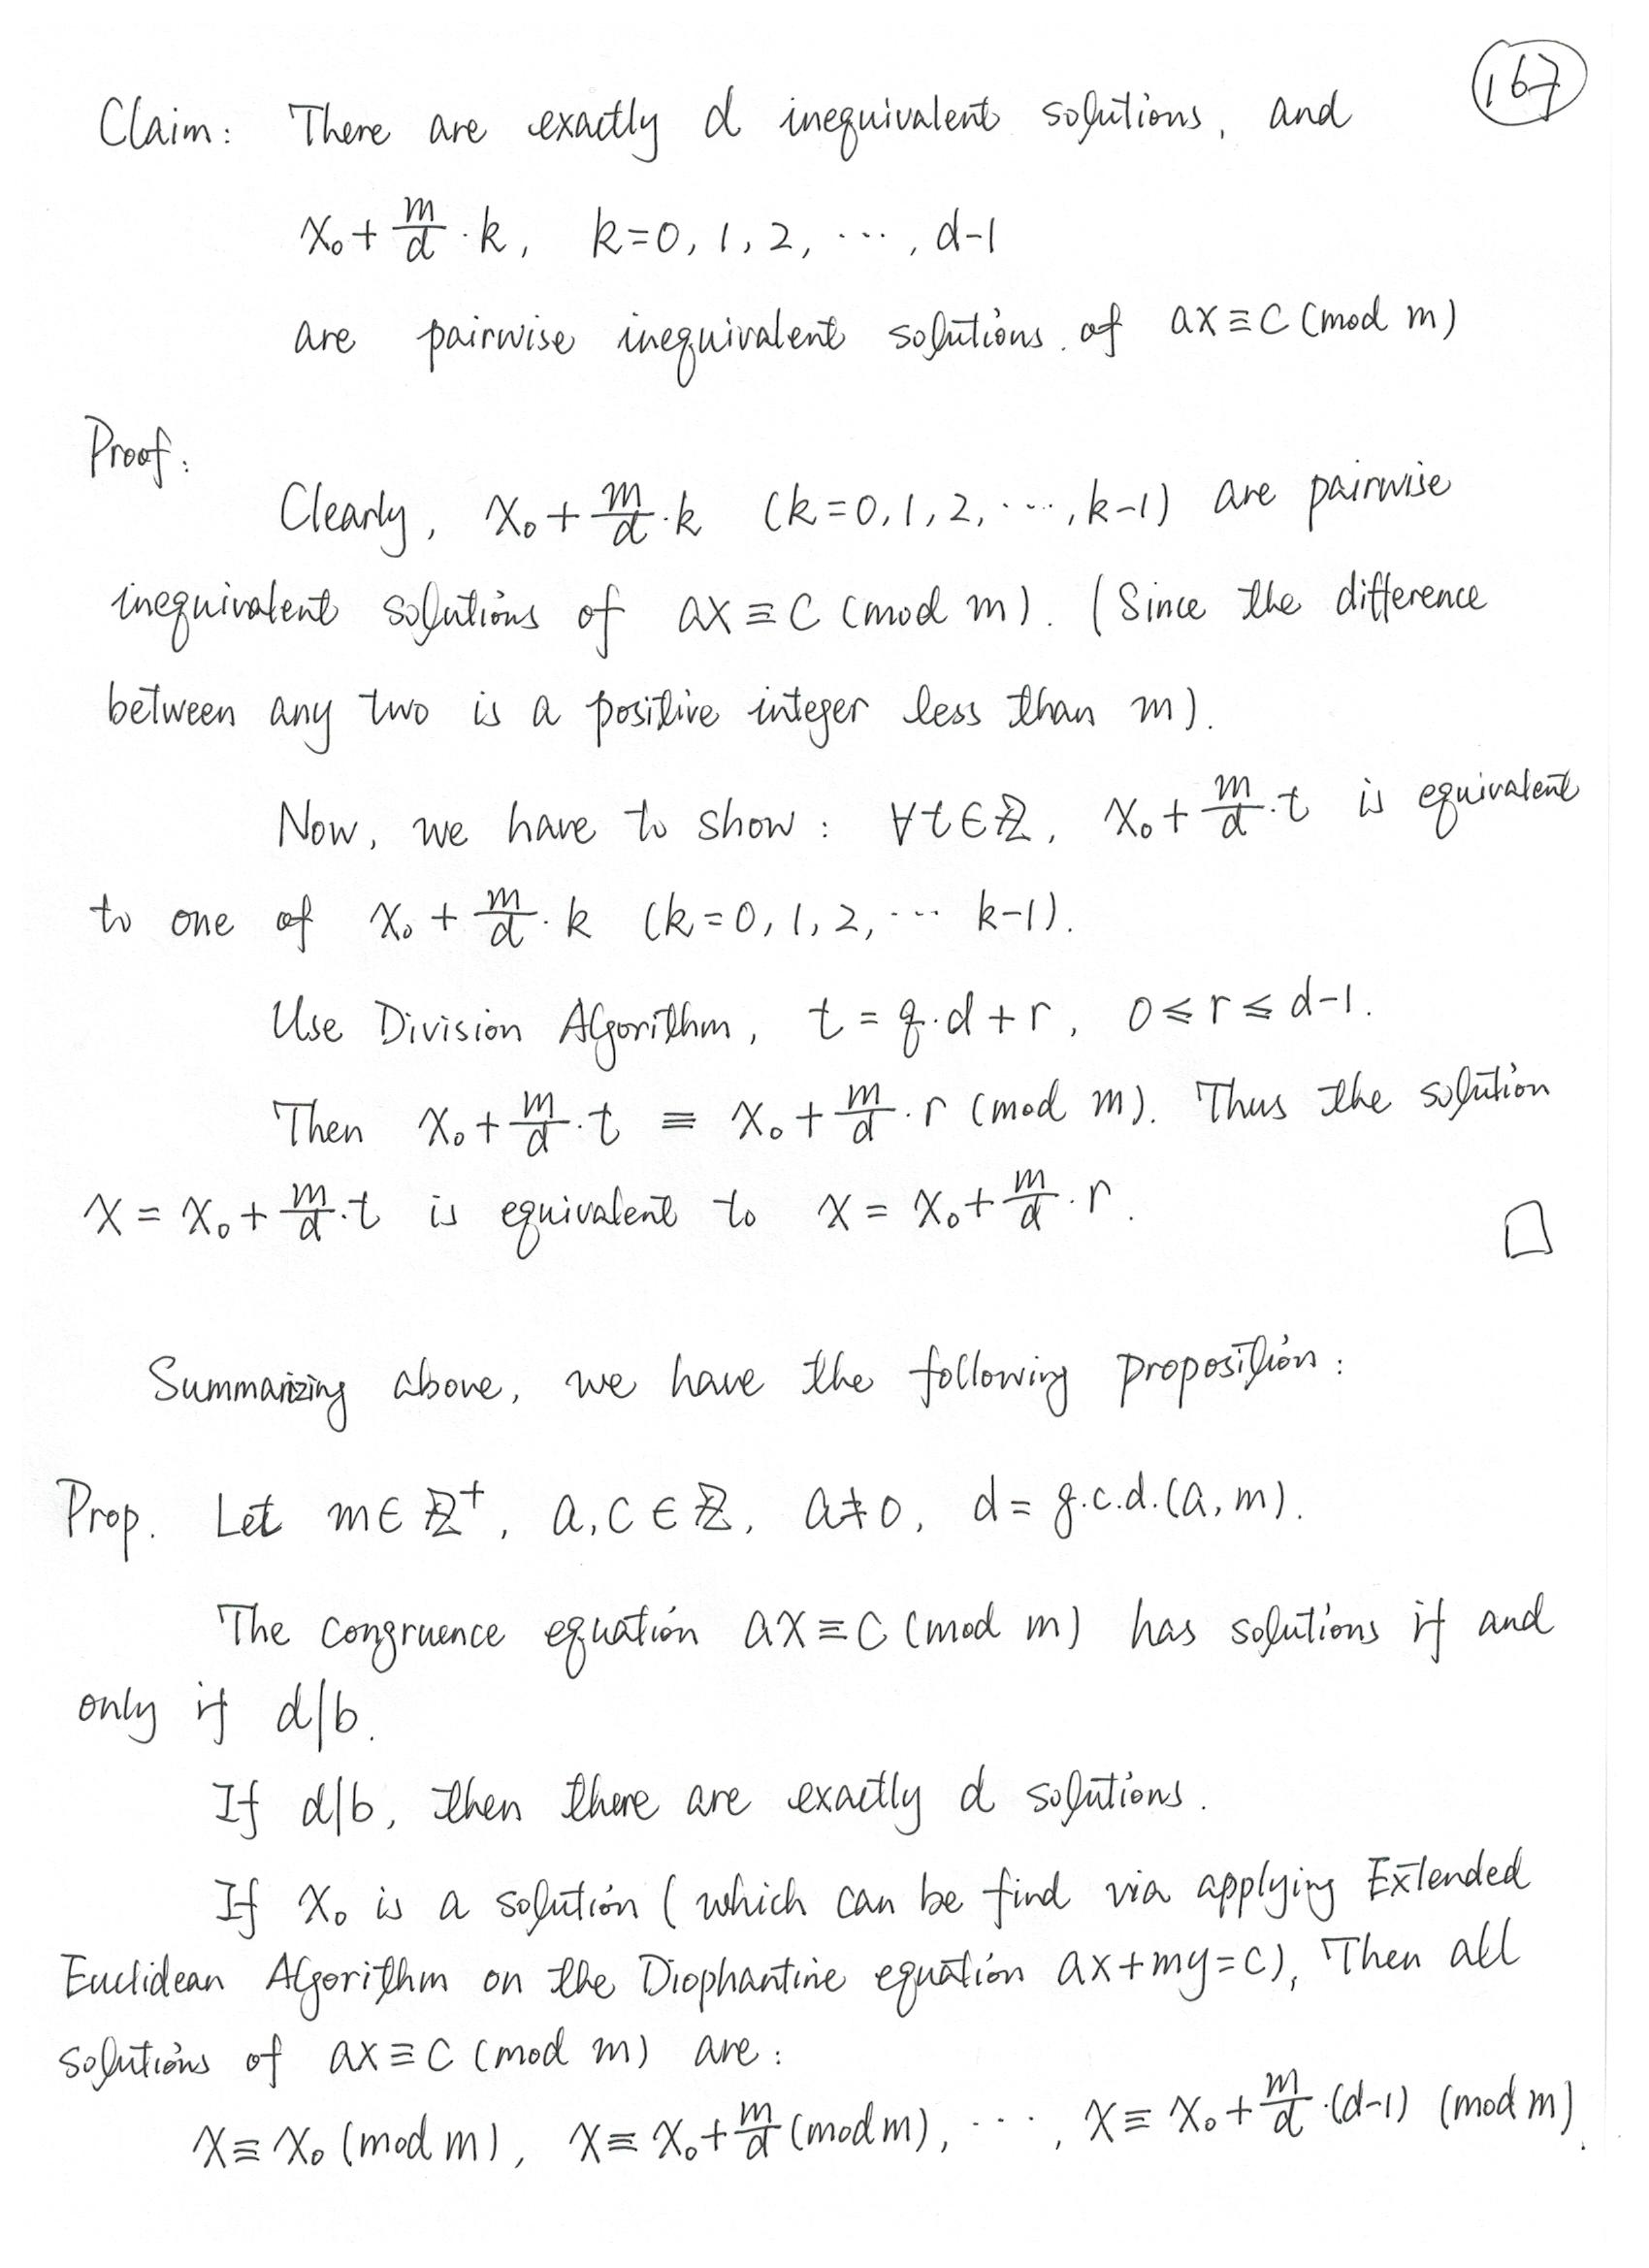 167
Claim: There are exactly d inequivalent solutions, and
x₀ + m/d · k, k=0, 1, 2, ⋯, d-1
are pairwise inequivalent solutions of ax ≡ c (mod m)
Proof:
Clearly, x₀ + m/d · k (k=0, 1, 2, ⋯, k-1) are pairwise
inequivalent solutions of ax ≡ c (mod m). (Since the difference
between any two is a positive integer less than m).
Now, we have to show: ∀t∈ℤ, x₀ + m/d · t is equivalent
to one of x₀ + m/d · k (k=0, 1, 2, ⋯ k-1).
Use Division Algorithm, t = q·d + r, 0 ≤ r ≤ d-1.
Then x₀ + m/d · t ≡ x₀ + m/d · r (mod m). Thus the solution
x = x₀ + m/d · t is equivalent to x = x₀ + m/d · r. □
Summarizing above, we have the following proposition:
Prop. Let m∈ℤ⁺, a, c ∈ ℤ, a≠0, d = g.c.d.(a, m).
The congruence equation ax ≡ c (mod m) has solutions if and
only if d|b.
If d|b, then there are exactly d solutions.
If x₀ is a solution (which can be find via applying Extended
Euclidean Algorithm on the Diophantine equation ax+my=c), Then all
solutions of ax ≡ c (mod m) are:
x ≡ x₀ (mod m), x ≡ x₀ + m/d (mod m), ⋯, x ≡ x₀ + m/d · (d-1) (mod m).